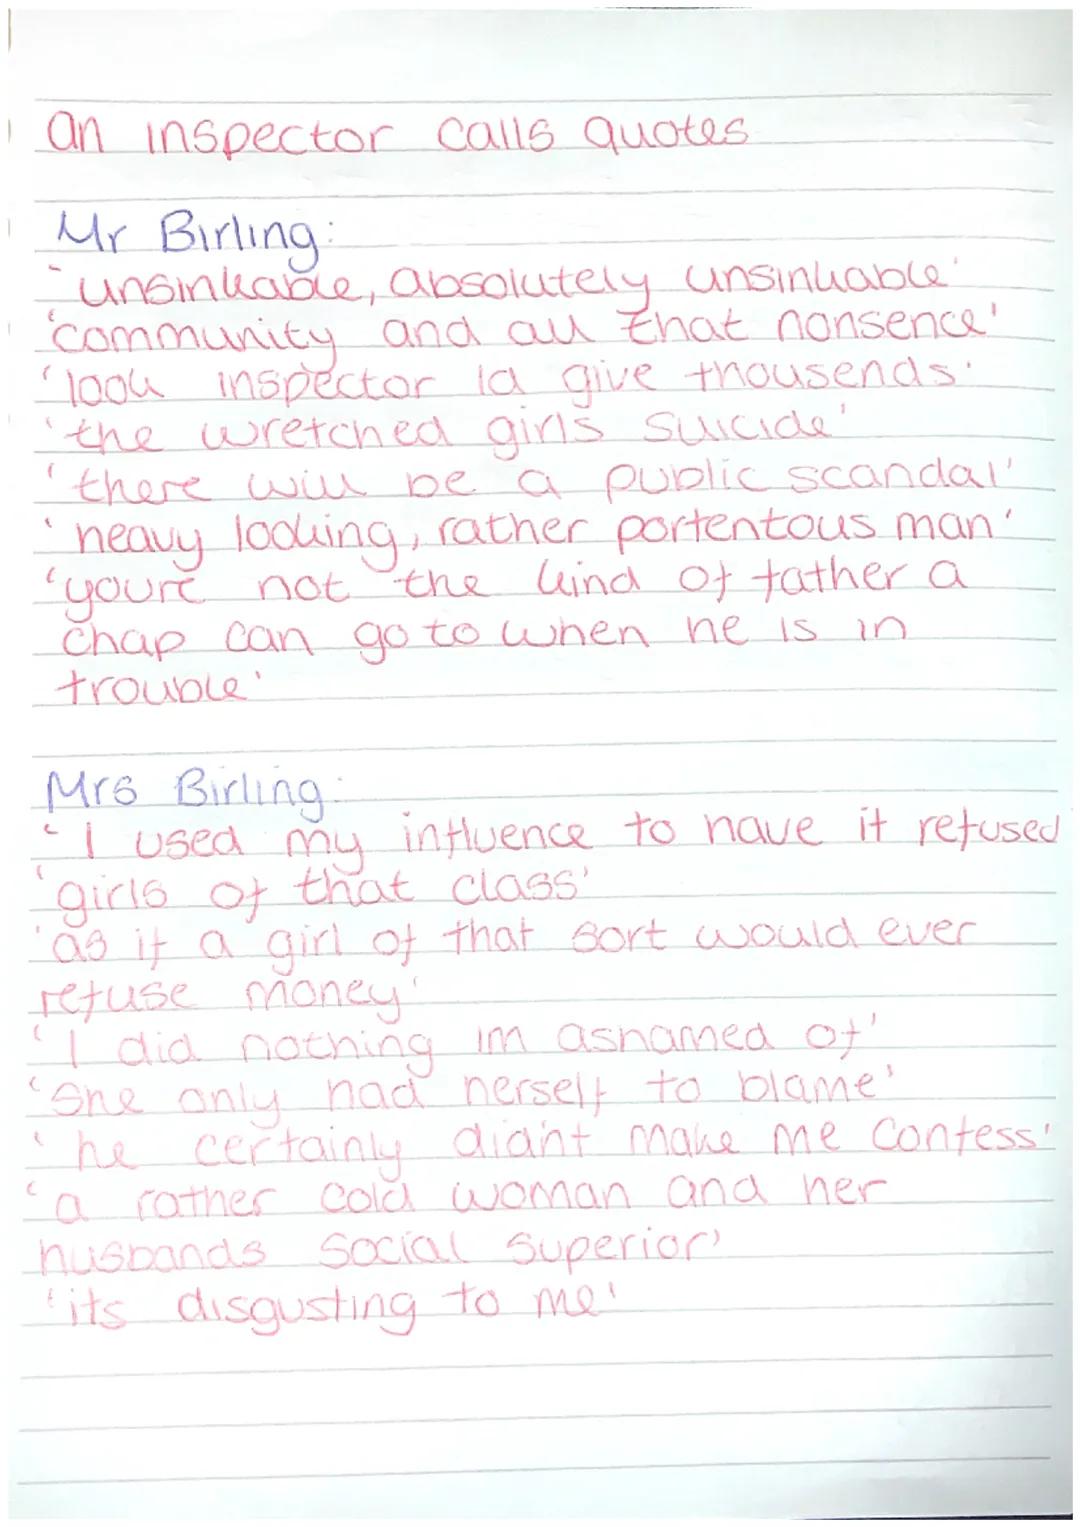 an inspector calls quotes
Mr Birling:
'unsinkable, absolutely unsinkable'
'community and all that nonsence'
'look inspector id give thousends'
'the wretched girls suicide'
'there will be a public scandal'
'heavy looking, rather portentous man'
'youre not the kind of father a
chap can go to when he is in
trouble'
Mrs Birling:
'I used my influence to have it refused
'girls of that class'
'as if a girl of that sort would ever
refuse money'
'I did nothing im ashamed of'
'she only had herself to blame'
'he certainly didnt make me confess'
'a rather cold woman and her
husbands social superior'
'its disgusting to me'